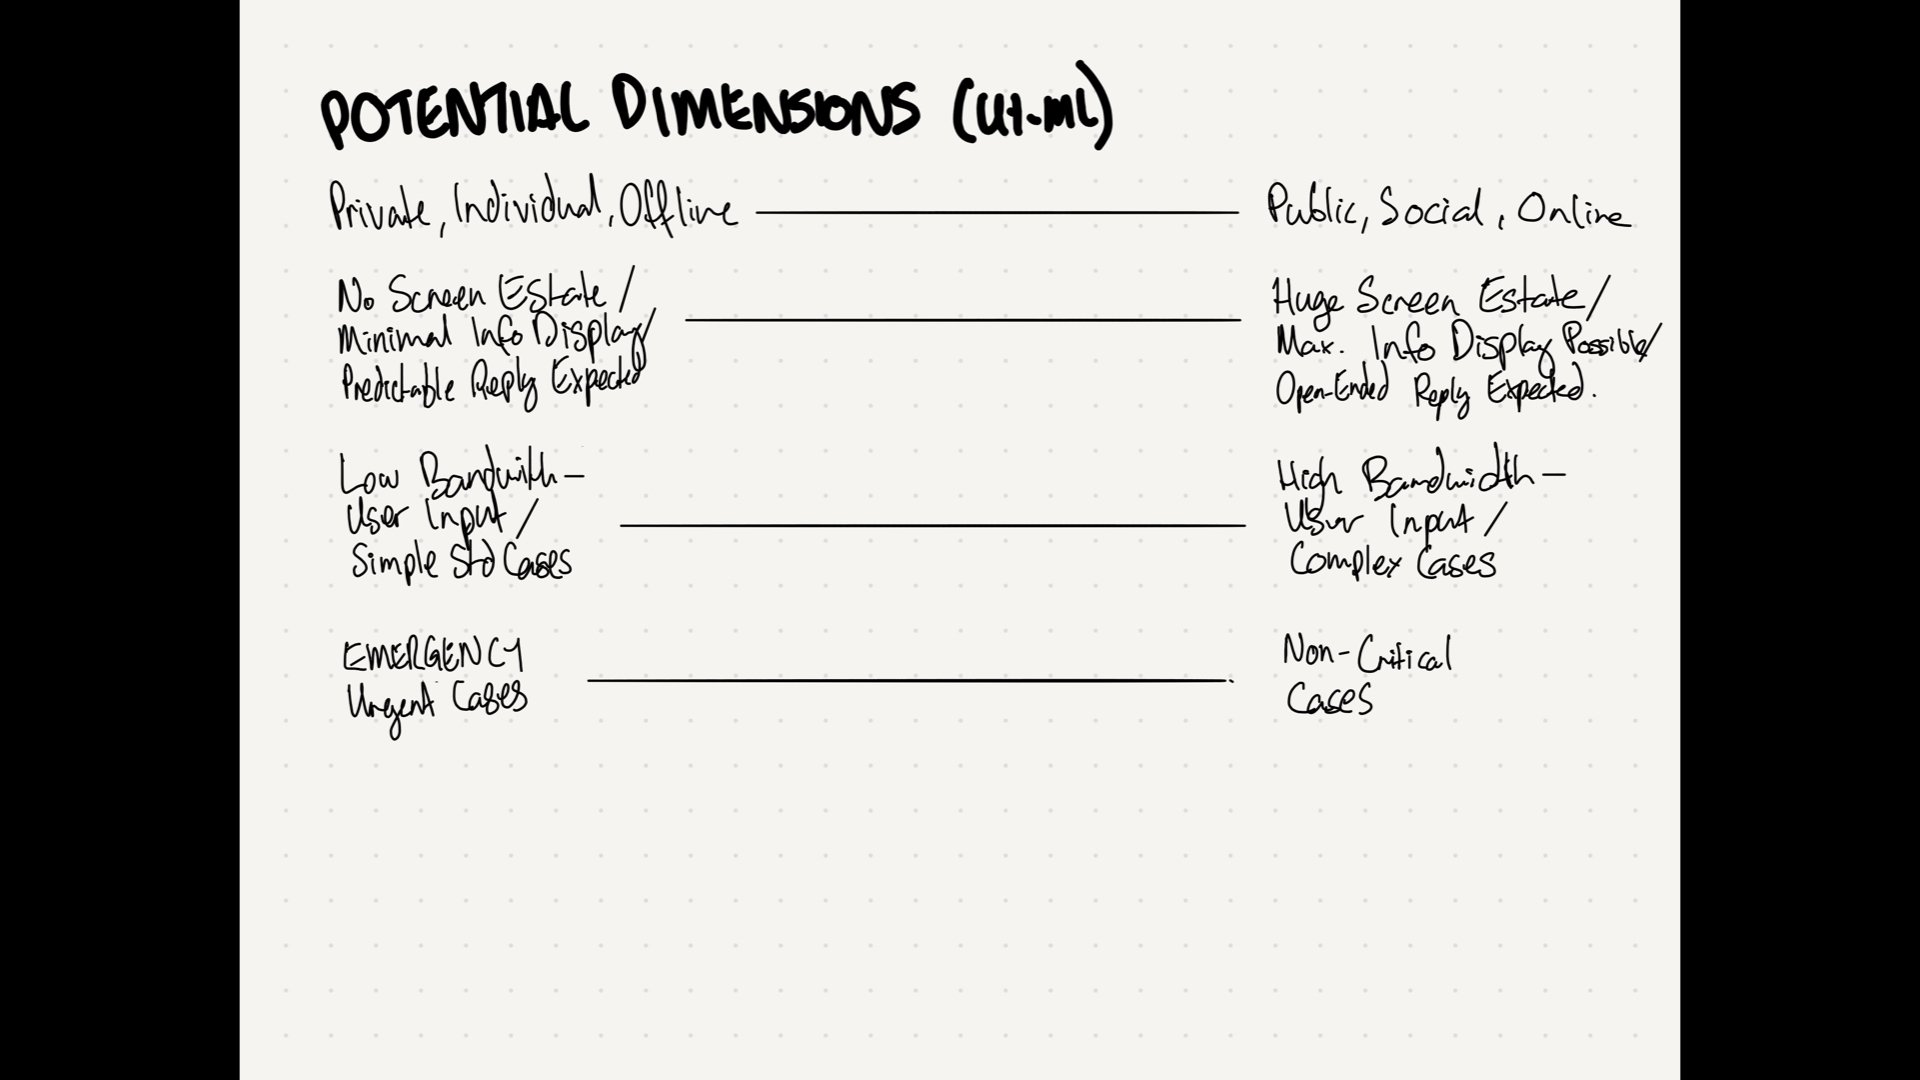 POTENTIAL DIMENSIONS (U+.ML)
Private, Individual, Offline
Public, Social, Online
No Screen Estate/
Minimal Info Display/
Predictable Reply Expected
Huge Screen Estate/
Max. Info Display Possible/
Open-Ended Reply Expected.
Low Bandwith-
User Input/
Simple Std Cases
High Bandwidth-
User Input/
Complex Cases
EMERGENCY
Urgent Cases
Non-Critical
Cases